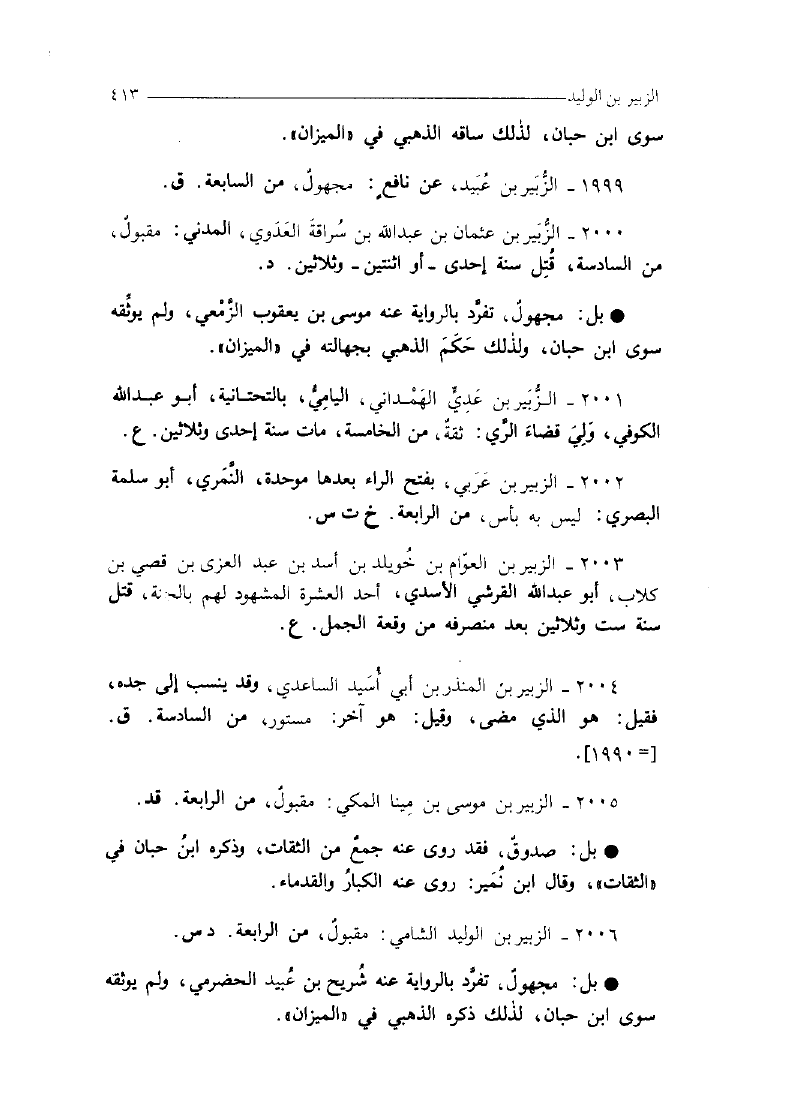 الزبير بن الوليد ٤١٣
سوى ابن حبان، لذٰلك ساقه الذهبي في «الميزان».
١٩٩٩ ـ الزُّبَير بن عُبَيد، عن نافعٍ: مجهولٌ، من السابعة. ق.
٢٠٠٠ ـ الزُّبَير بن عثمان بن عبدالله بن سُراقةَ العَدَوي، المدني: مقبولٌ،
من السادسة، قُتِل سنة إحدى ـ أو اثنتين ـ وثلاثين. د.
● بل: مجهولٌ، تفرَّد بالرواية عنه موسى بن يعقوب الزَّمْعي، ولم يوثِّقه
سوى ابن حبان، ولذٰلك حَكَمَ الذهبي بجهالته في «الميزان».
٢٠٠١ ـ الـزُّبَير بن عَدِيٍّ الهَمْـداني، اليامِيُّ، بالتحتـانية، أبـو عبـدالله
الكوفي، وَلِيَ قضاءَ الرَّي: ثقةٌ، من الخامسة، مات سنة إحدى وثلاثين. ع.
٢٠٠٢ ـ الزبير بن عَرَبي، بفتح الراء بعدها موحدة، النَّمَري، أبو سلمة
البصري: ليس به بأس، من الرابعة. خ ت س.
٢٠٠٣ ـ الزبير بن العوّام بن خُويلد بن أسد بن عبد العزى بن قصي بن
كلاب، أبو عبدالله القرشي الأسدي، أحد العشرة المشهود لهم بالجنة، قتل
سنة ست وثلاثين بعد منصرفه من وقعة الجمل. ع.
٢٠٠٤ ـ الزبير بن المنذر بن أبي أُسَيد الساعدي، وقد ينسب إلى جده،
فقيل: هو الذي مضى، وقيل: هو آخر: مستور، من السادسة. ق.
[= ١٩٩٠].
٢٠٠٥ ـ الزبير بن موسى بن مِينا المكي: مقبولٌ، من الرابعة. قد.
● بل: صدوقٌ، فقد روى عنه جمعٌ من الثقات، وذكره ابنُ حبان في
«الثقات»، وقال ابن نُمَير: روى عنه الكبارُ والقدماء.
٢٠٠٦ ـ الزبير بن الوليد الشامي: مقبولٌ، من الرابعة. د س.
● بل: مجهولٌ، تفرَّد بالرواية عنه شُريح بن عُبيد الحضرمي، ولم يوثقه
سوى ابن حبان، لذٰلك ذكره الذهبي في «الميزان».